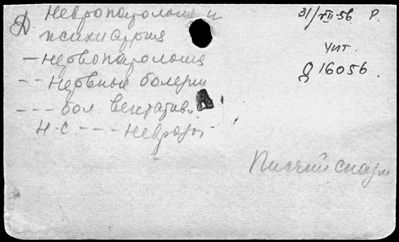 Невропатология и
Д психиатрия
31/XII-56 Р.
Чит.
Д 16056.
- нервопатология
-- Нервные болезни
--- бол. вегетатив
Н.С --- Неврозы
Писчий спазм